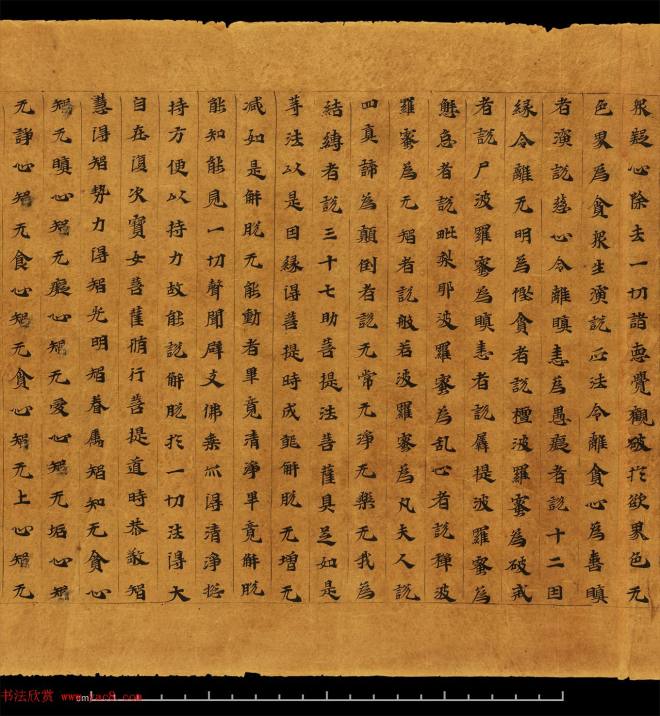 衆疑心除去一切諸惡覺觀破於欲界色无
色界為貪衆生演說正法令離貪心為喜瞋
者演說慈心令離瞋恚為愚癡者說十二因
緣令離无明為慳貪者說檀波羅蜜為破戒
者說尸波羅蜜為瞋恚者說羼提波羅蜜為
懈怠者說毗梨耶波羅蜜為乱心者說禪波
羅蜜為无智者說般若波羅蜜為凡夫人說
四真諦為顛倒者說无常无淨无樂无我為
結縛者說三十七助菩提法菩薩具足如是
等法以是因緣得菩提時成就解脫无增无
減如是解脫无能動者畢竟清淨畢竟解脫
能知能見一切聲聞辟支佛乘亦得清淨惣
持方便以持力故能說解脫於一切法得大
自在復次寶女菩薩脩行菩提道時恭敬智
慧得智勢力得智光明智眷属智知无貪心
智无瞋心智无癡心智无愛心智无垢心智
无諍心智无食心智无貪心智无上心智无
书法欣赏 www.yac8.com
cm